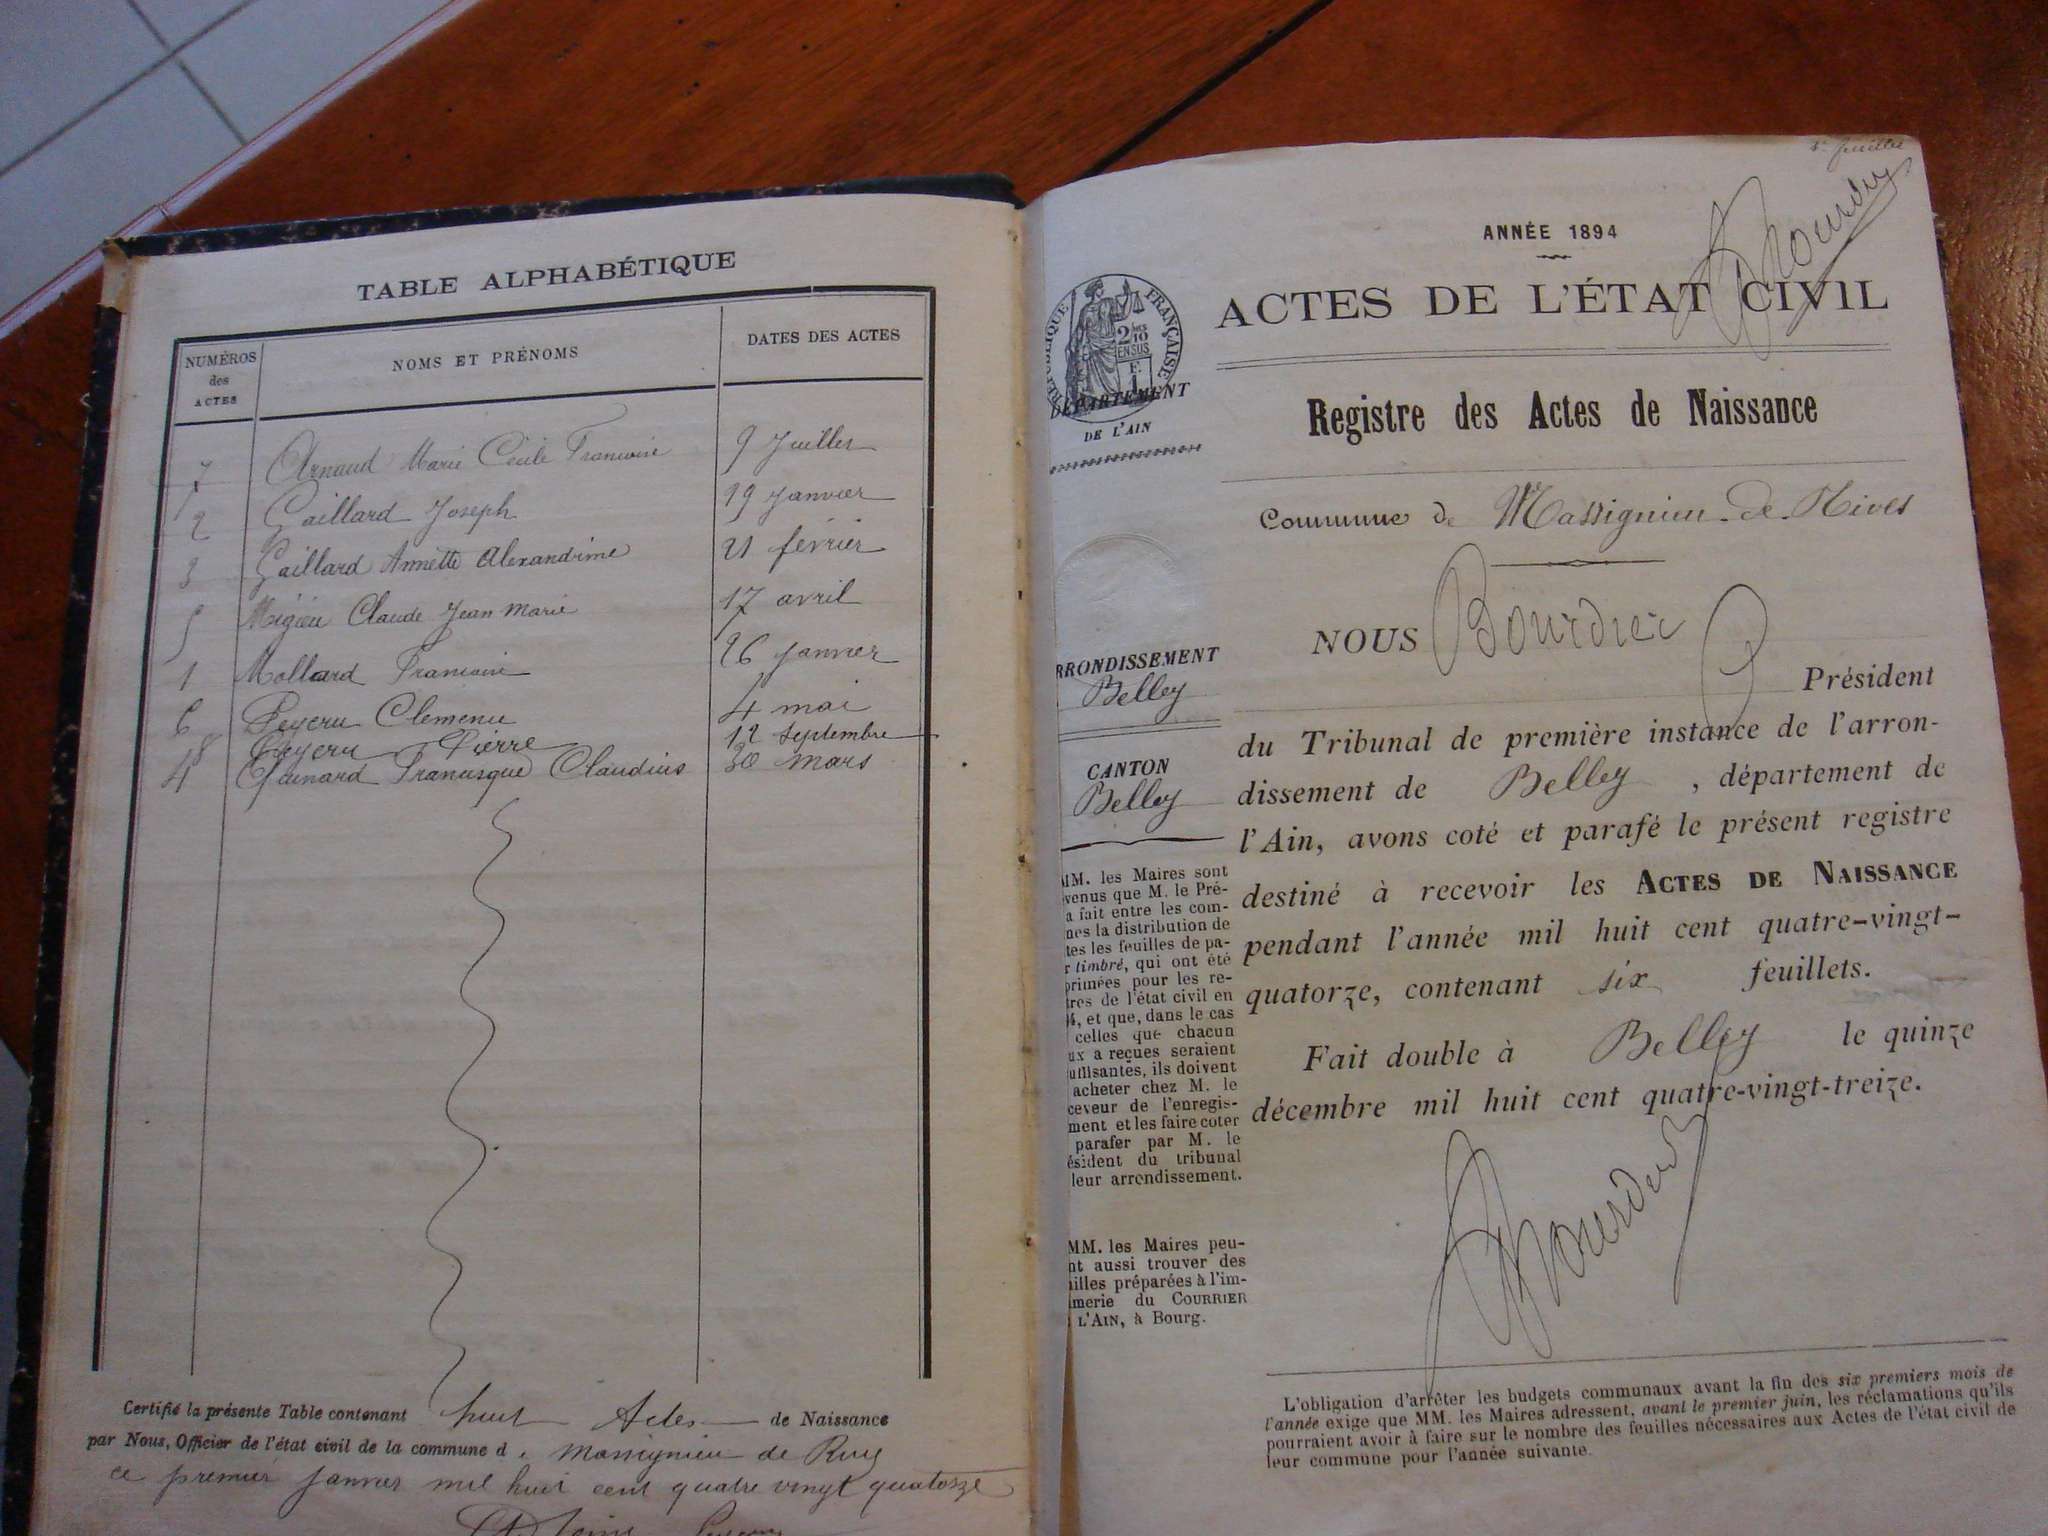 TABLE ALPHABÉTIQUE
NUMÉROS des ACTES
NOMS ET PRÉNOMS
DATES DES ACTES
7 Arnaud Marie Cécile Francoise 9 Juillet
2 Gaillard Joseph 19 Janvier
3 Gaillard Annette Alexandrine 21 février
5 Migieu Claude Jean Marie 17 avril
1 Mollard Francoise 26 Janvier
6 Peyeru Clemence 4 mai
8 Peyeru Pierre 12 Septembre
4 Quinard Francisque Claudius 30 mars
Certifié la présente Table contenant huit Actes de Naissance
par Nous, Officier de l'état civil de la commune d. Massignieu de Rives
ce premier Janvier mil huit cent quatre vingt quatorze
feuillet
ANNÉE 1894
ACTES DE L'ÉTAT CIVIL
RÉPUBLIQUE FRANÇAISE
2/10 EN SUS
F. 1
DÉPARTEMENT
DE L'AIN
Registre des Actes de Naissance
Commune de Massignieu-de-Rives
NOUS Bourdier
Président
du Tribunal de première instance de l'arron-
dissement de Belley, département de
l'Ain, avons coté et parafé le présent registre
destiné à recevoir les ACTES DE NAISSANCE
pendant l'année mil huit cent quatre-vingt-
quatorze, contenant six feuillets.
Fait double à Belley le quinze
décembre mil huit cent quatre-vingt-treize.
Bourdier
RRONDISSEMENT
Belley
CANTON
Belley
MM. les Maires sont
venus que M. le Pré-
a fait entre les com-
nes la distribution de
tes les feuilles de pa-
r timbré, qui ont été
primées pour les re-
tres de l'état civil en
4, et que, dans le cas
celles que chacun
ux a reçues seraient
uffisantes, ils doivent
acheter chez M. le
ceveur de l'enregis-
ment et les faire coter
parafer par M. le
ésident du tribunal
leur arrondissement.
MM. les Maires peu-
nt aussi trouver des
illes préparées à l'im-
merie du COURRIER
L'AIN, à Bourg.
L'obligation d'arrêter les budgets communaux avant la fin des six premiers mois de
l'année exige que MM. les Maires adressent, avant le premier juin, les réclamations qu'ils
pourraient avoir à faire sur le nombre des feuilles nécessaires aux Actes de l'état civil de
leur commune pour l'année suivante.